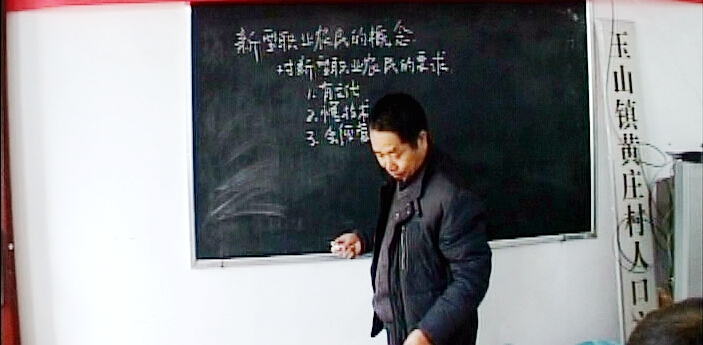 新型职业农民的概念
对新型职业农民的要求
1. 有文化
2. 懂技术
3. 会经营
玉山镇黄庄村人口